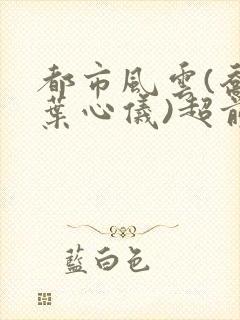 都市風雲(喬
葉心儀)超前
藍白色